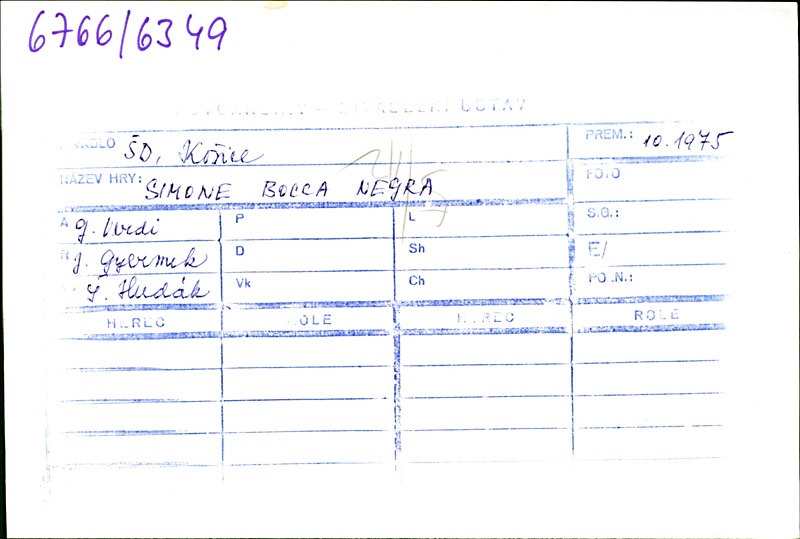 6766/6349
DIVADELNÍ ÚSTAV
ŠD, Košice
PREM.: 10.1975
NÁZEV HRY: SIMONE BOCCA NEGRA
FOTO
A G. Verdi
P
L
S.G.:
R J. Gyermek
D
Sh
E/
Š. Hudák
Vk
Ch
HEREC
ROLE
HEREC
ROLE